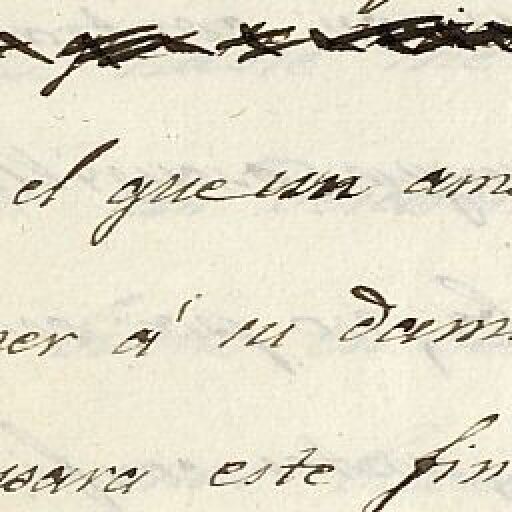 el que un am
er á su dam
sara este fin